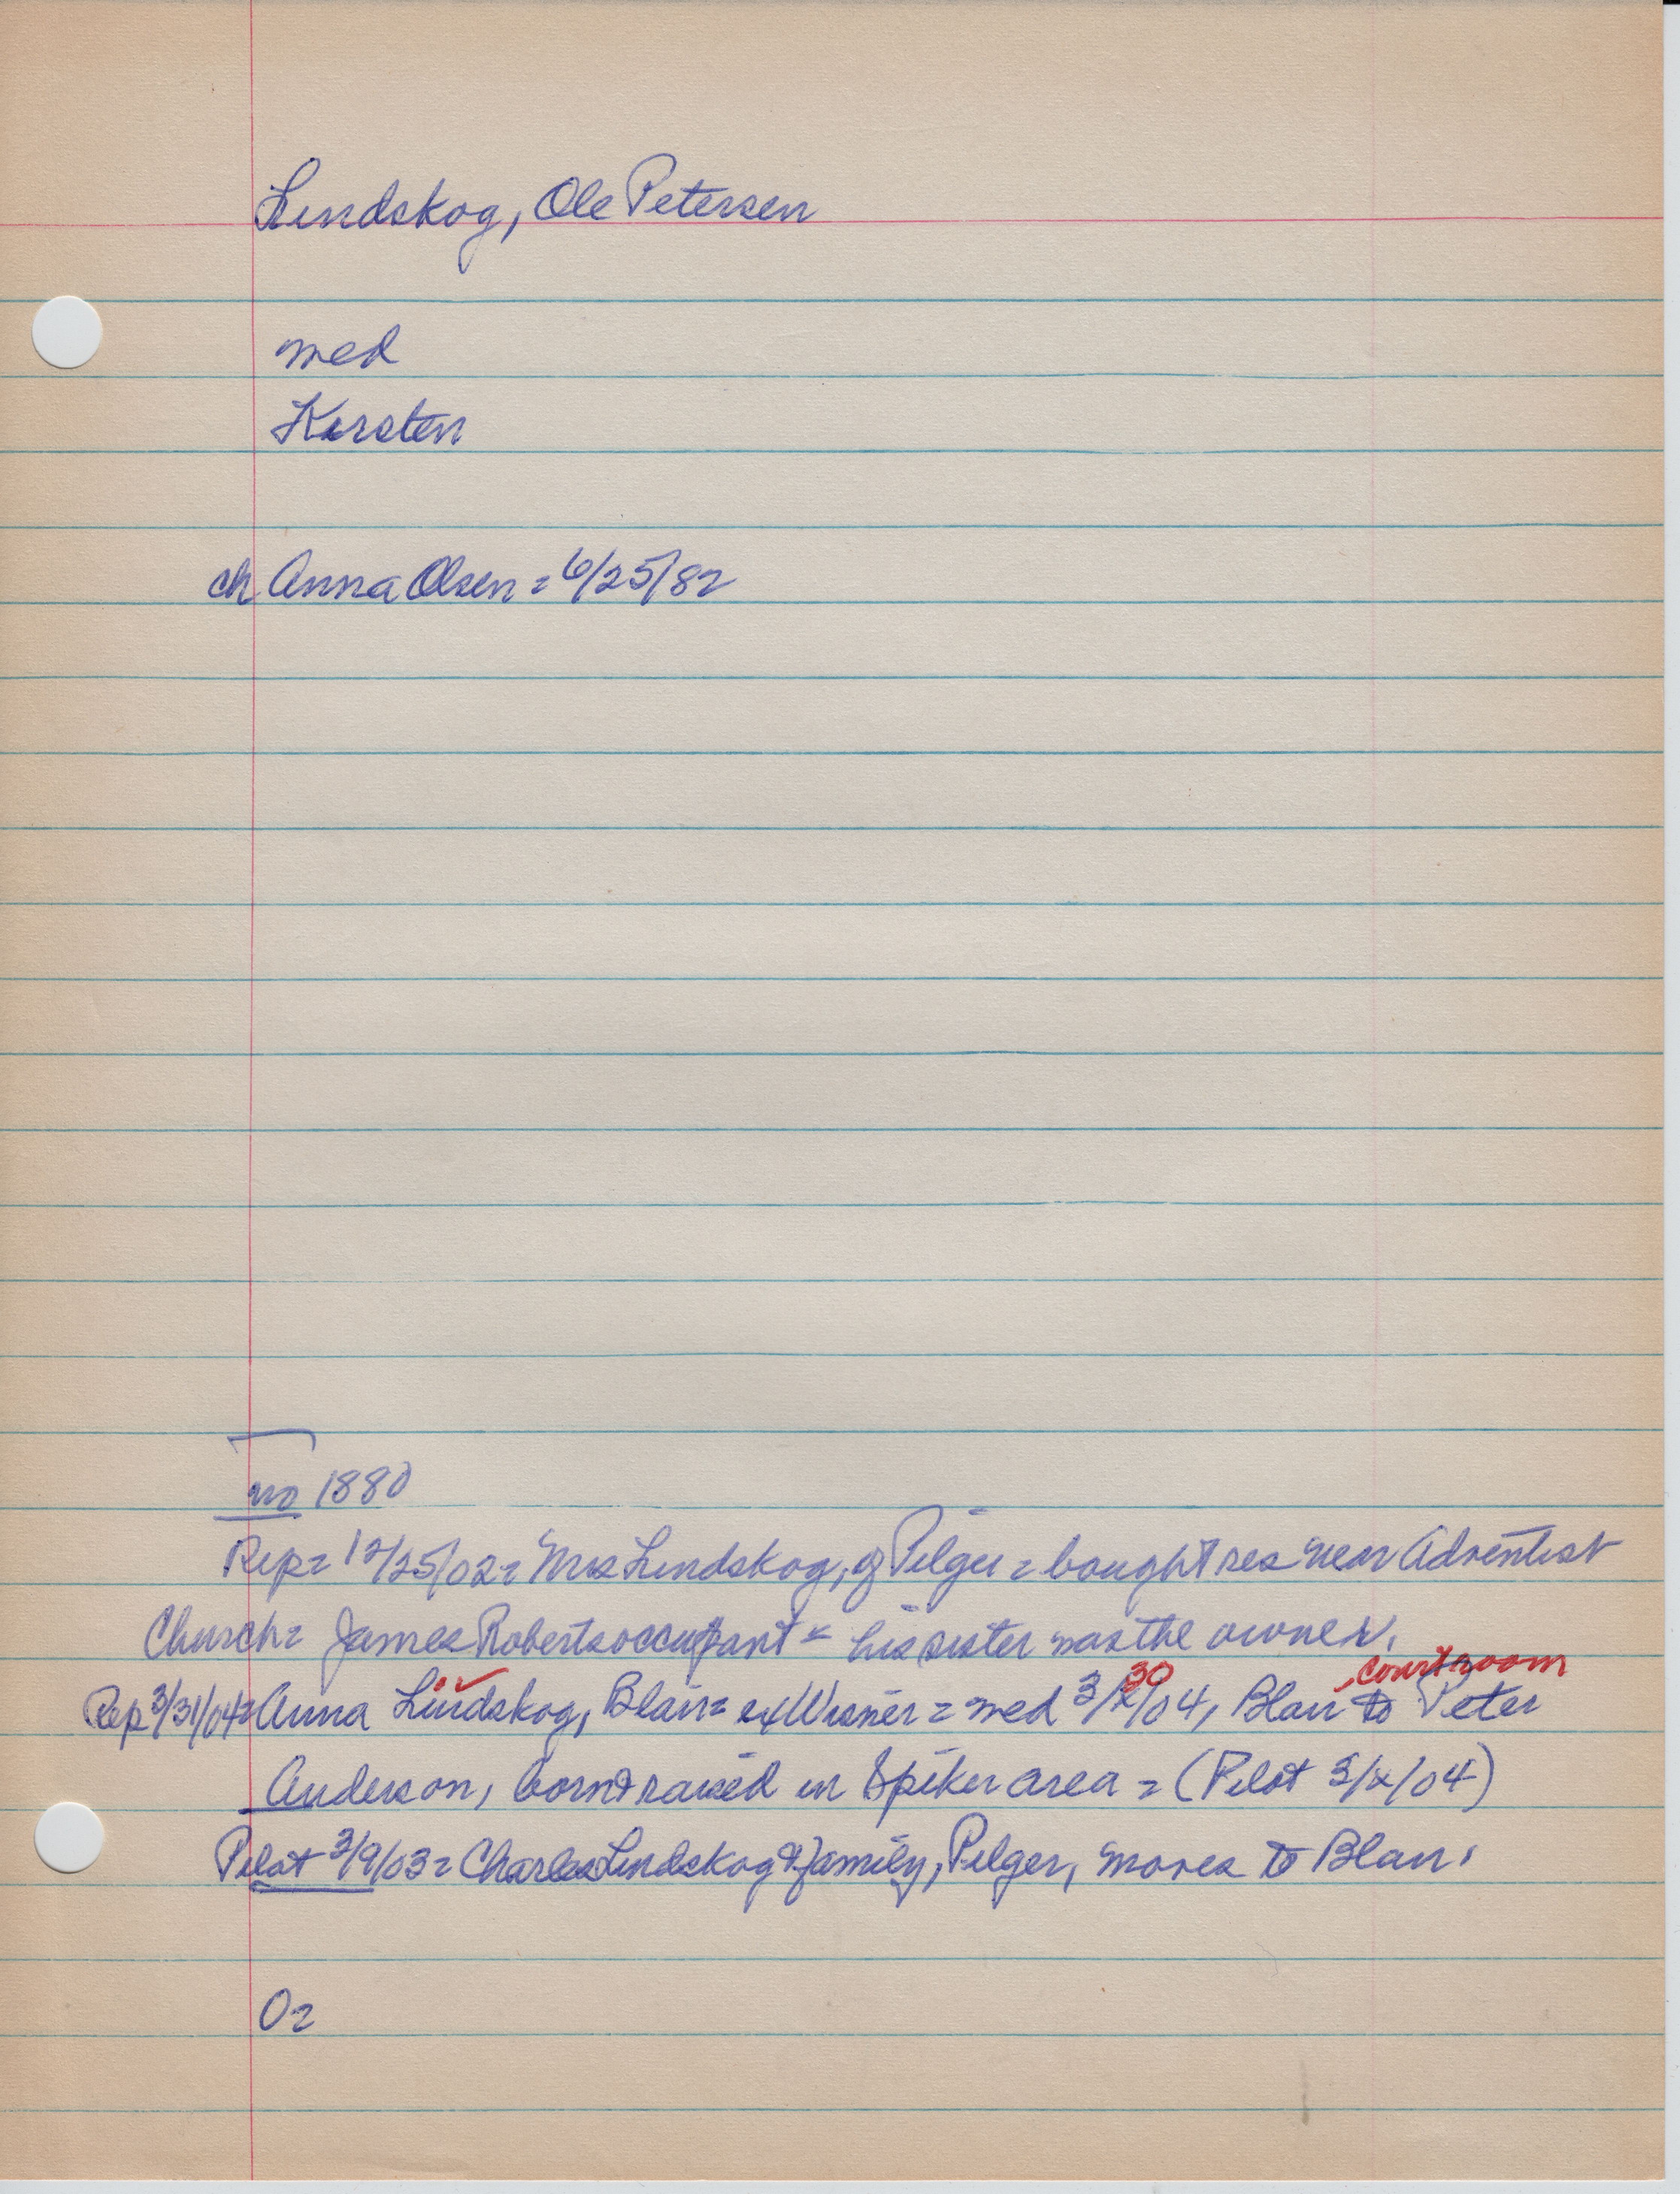 Lindskog, Ole Petersen
med
Kirsten
ch Anna Olsen = 6/25/82
no 1880
Rep = 12/25/02 = Mrs Lindskog, of Pilger = bought res near Adventist
Church = James Roberts occupant = his sister was the owner.
courtroom
Rep 3/31/04 = Anna Lindskog, Blair = ex Wisner = med 3/30/04, Blair to Peter
Anderson, born & raised in Spiker area = (Pilot 3/x/04)
Pilot 3/9/03 = Charles Lindskog & family, Pilger, moves to Blair.
O =